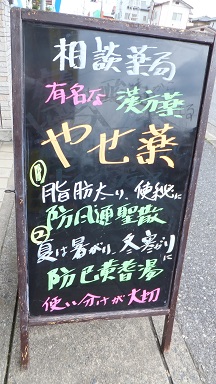 相談薬局
有名な漢方薬
やせ薬
① 脂肪太り、便秘に
防風通聖散
② 夏は暑がり、冬寒がりに
防已黄耆湯
使い分けが大切